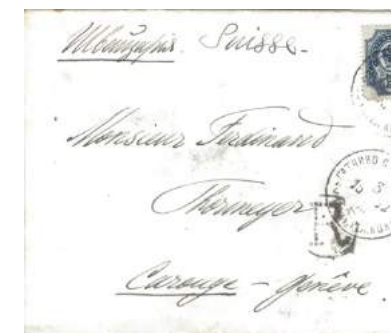 Швейцарія. Suisse.
Monsieur Ferdinand
Thormeyer
ГАТЧИНО
Carouge - Genève.